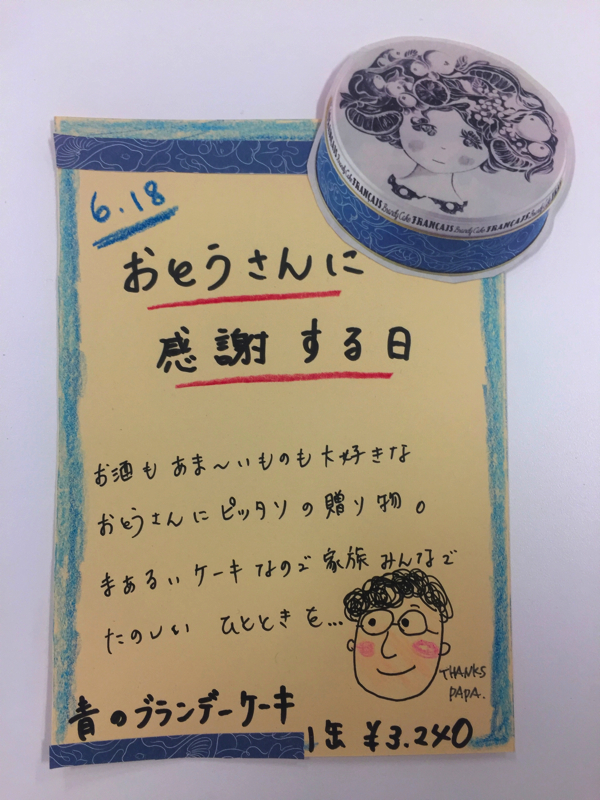 FRANÇAIS Brandy Cake FRANÇAIS Brandy Cake FRANÇAIS
6.18
おとうさんに
感謝する日
お酒もあま〜いものも大好きな
おとうさんにピッタリの贈り物。
まあるいケーキなので家族みんなで
たのしい ひとときを...
THANKS
PAPA.
青のブランデーケーキ
1缶 ¥3.240